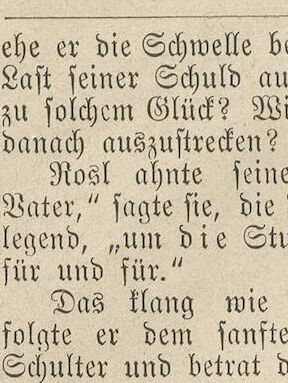 ehe er die Schwelle be
Laſt ſeiner Schuld au
zu ſolchem Glück? Wi
danach auszuſtrecken?
Rosl ahnte ſeine
Vater,“ ſagte ſie, die
legend, „um die Stu
für und für.“
Das klang wie
folgte er dem ſanfte
Schulter und betrat d